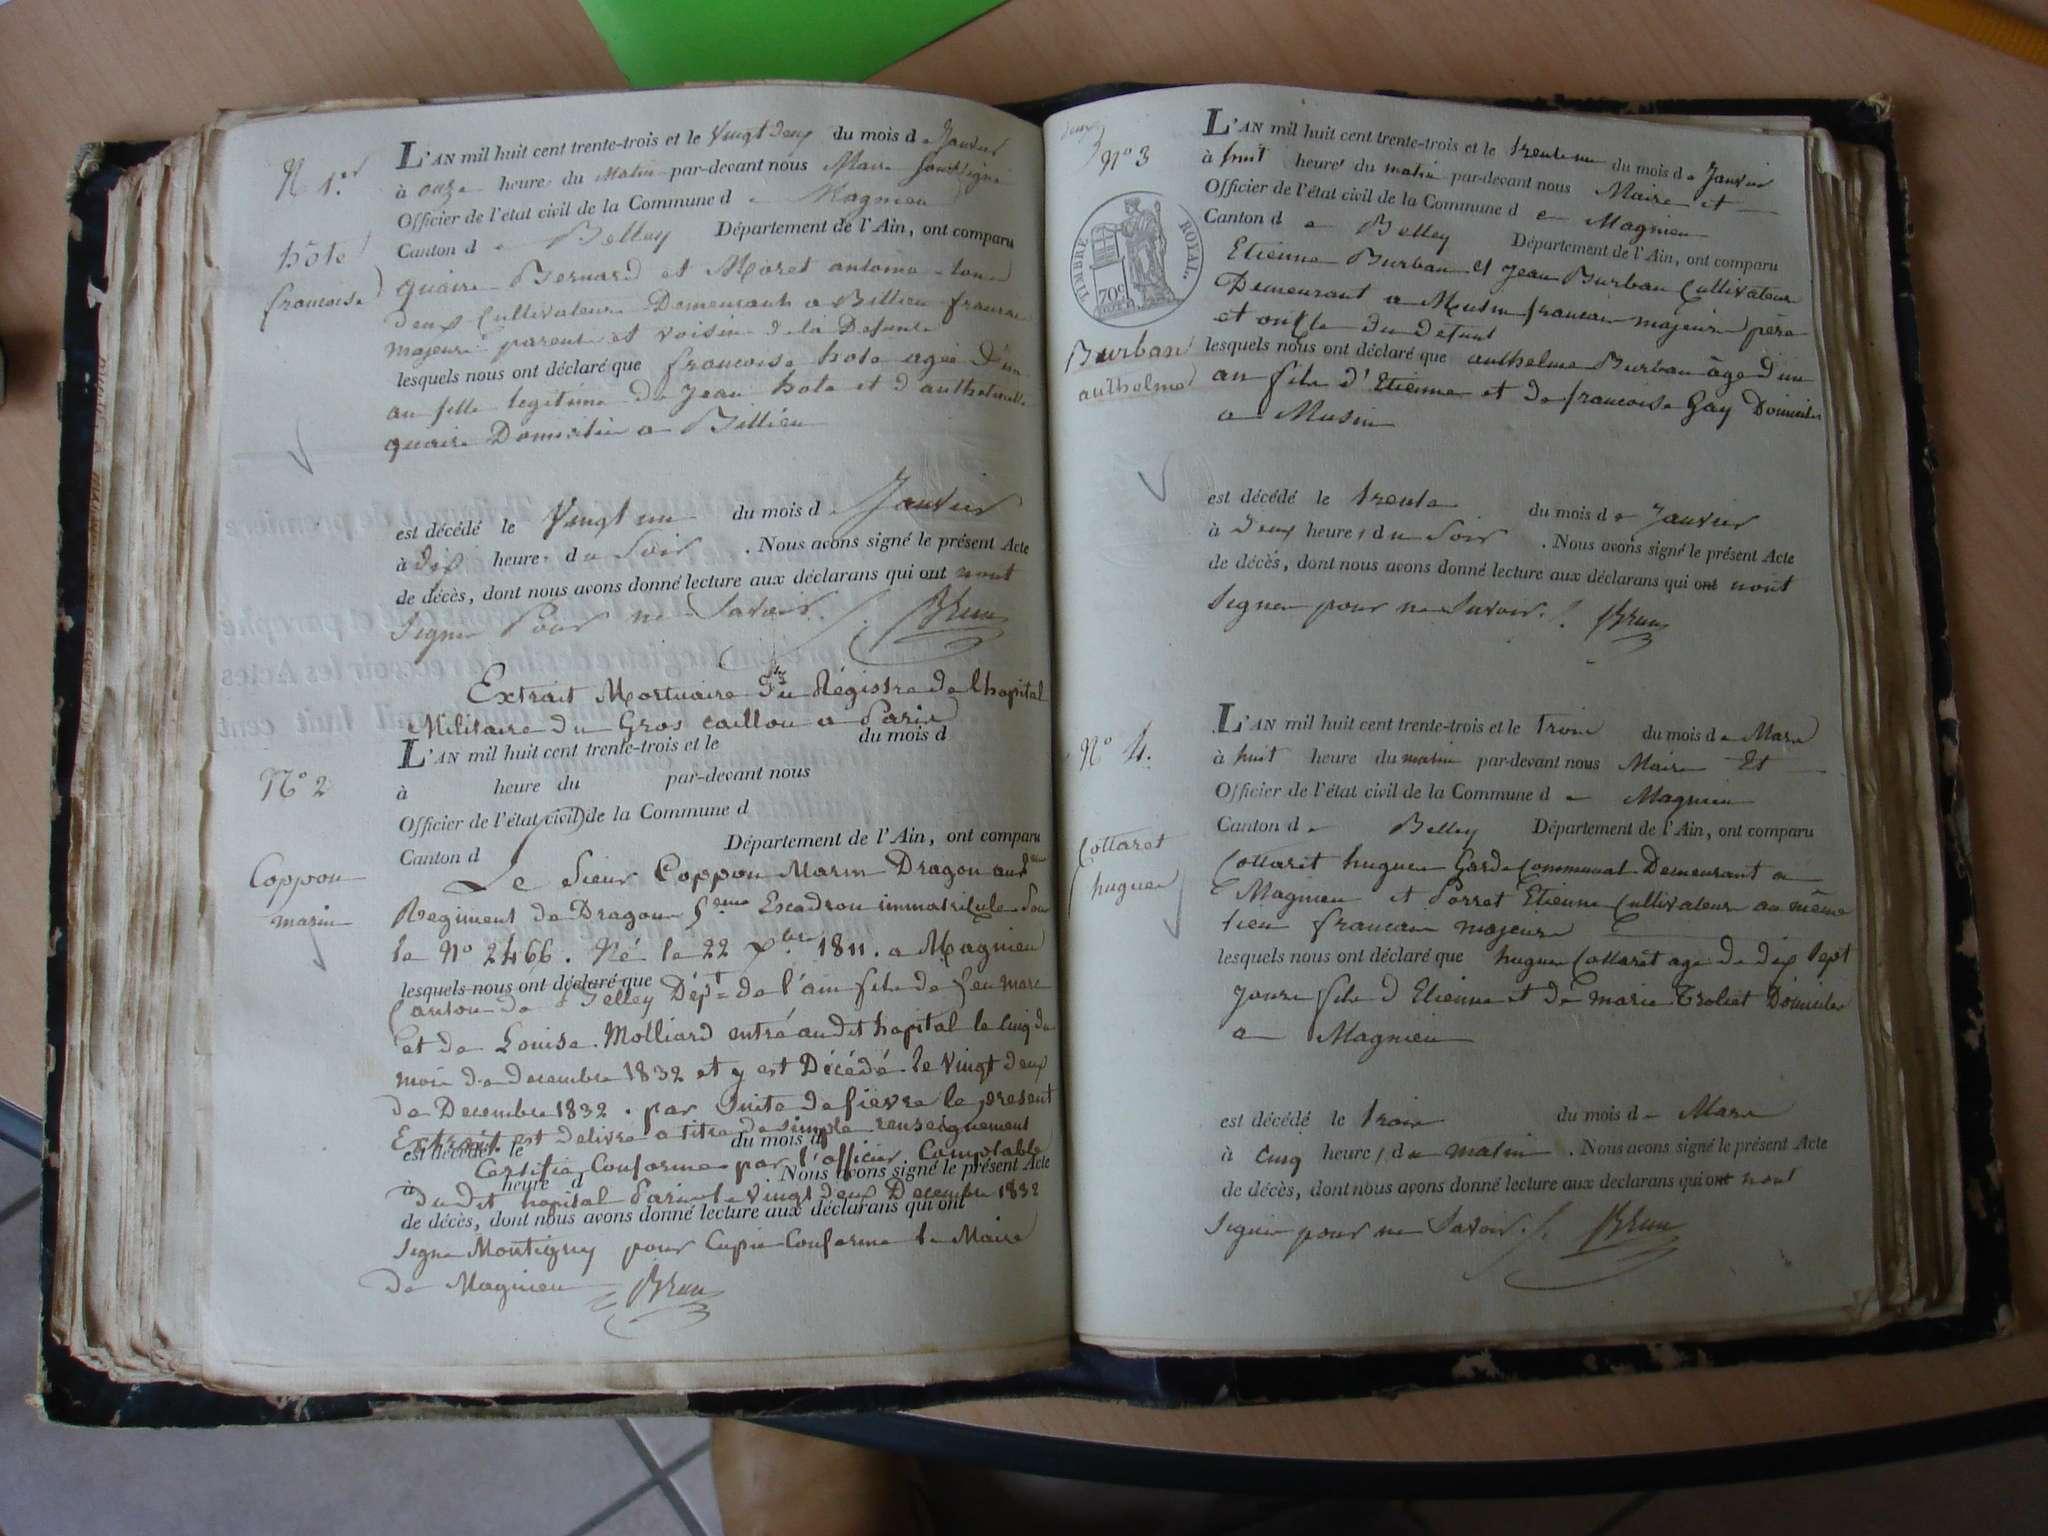 N 1.er
hôte
francoise
L'AN mil huit cent trente-trois et le vingt deux du mois de Janvier
à onze heure du Matin par-devant nous Maire soussigné
Officier de l'état civil de la Commune de Magnieu
Canton de Belley Département de l'Ain, ont comparu
quaire Bernard et Moret antoine tous
deux Cultivateurs Demeurants a Billieu francais
majeurs parent et voisin de la Defunte
lesquels nous ont déclaré que francoise hote agée d'un
an fille legitime de Jean hote et d'anthelmette
quaire Domicilié a Billieu
est décédé le Vingt un du mois de Janvier
à dix heure du Soir . Nous avons signé le présent Acte
de décès, dont nous avons donné lecture aux déclarans qui ont nont
Signer Pour ne Savoir. Brun
Extrait Mortuaire du Régistre de l'hopital
Militaire du Gros caillou a Paris
N° 2
Coppon
marin
L'AN mil huit cent trente-trois et le du mois d
à heure du par-devant nous
Officier de l'état civil de la Commune d
Canton d Département de l'Ain, ont comparu
Le Sieur Coppon Marin Dragon au
Regiment de Dragons 5eme Escadron immatriculé Sous
le N° 2466. Né le 22 Xbre 1811. a Magnieu
lesquels nous ont déclaré que
Canton de Belley Dépt de l'ain fils de feu marc
et de Louise Molliard entré au dit hopital le cinq du
mois de decembre 1832 et y est Décédé le vingt deux
de Decembre 1832. par Suite de fièvre le present
Extrait est delivré a titre de simple renseignement
est décédé le du mois d
Certifié Conforme par l'officier Comptable
à heure d . Nous avons signé le présent Acte
du dit hopital Paris le vingt deux Decembre 1832
de décès, dont nous avons donné lecture aux déclarans qui ont
Signé Montigny pour Copie Conforme le Maire
de Magnieu Brun
deux
N° 3
TIMBRE ROYAL.
70c
Burban
anthelme
L'AN mil huit cent trente-trois et le trente un du mois de Janvier
à huit heure du matin par-devant nous Maire et
Officier de l'état civil de la Commune de Magnieu
Canton de Belley Département de l'Ain, ont comparu
Etienne Burban et Jean Burban Cultivateurs
Demeurant a Musin francais majeurs père
et oncle du defunt
lesquels nous ont déclaré que anthelme Burban âgé d'un
an fils d'Etienne et de francoise Gay Domicilés
a Musin
est décédé le trente du mois de Janvier
à deux heure, du Soir . Nous avons signé le présent Acte
de décès, dont nous avons donné lecture aux déclarans qui ont nont
Signer pour ne Savoir. Brun
N° 4.
Collaret
hugues
L'AN mil huit cent trente-trois et le Trois du mois de Mars
à huit heure du matin par-devant nous Maire Et
Officier de l'état civil de la Commune de Magnieu
Canton de Belley Département de l'Ain, ont comparu
Collaret hugues Garde Communal Demeurant a
Magnieu et Porret Etienne Cultivateur au même
lieu francais majeurs
lesquels nous ont déclaré que hugues Collaret agé de dix Sept
Jours fils d'Etienne et de marie Troliet Domicilés
a Magnieu
est décédé le trois du mois de Mars
à cinq heure, du matin . Nous avons signé le présent Acte
de décès, dont nous avons donné lecture aux declarans qui ont nont
Signer pour ne Savoir. Brun